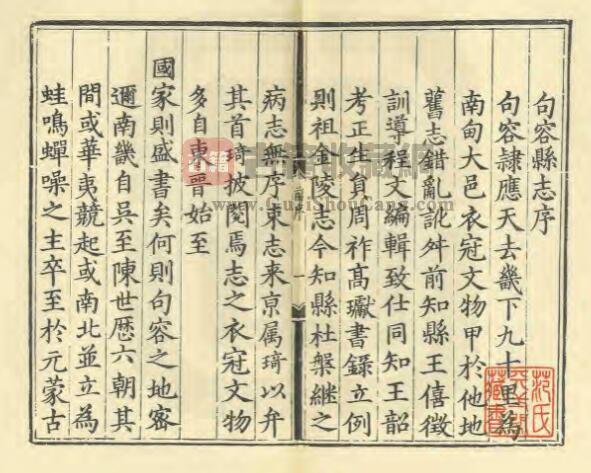 句容縣志序
句容隸應天去畿下九十里為
南甸大邑衣冠文物甲於他地
舊志錯亂訛舛前知縣王僖徵
訓導程文編輯致仕同知王韶
考正生負周祚高瓛書錄立例
則祖金陵志今知縣杜槃継之
病志無序束志来京属琦以弁
其首琦披閱焉志之衣冠文物
多自東晉始至
國家則盛書矣何則句容之地密
邇南畿自吳至陳世歷六朝其
間或華夷競起或南北並立為
蛙鳴蟬噪之主卒至於元蒙古
序
一
范氏
藏書
古籍收藏網
www.GuJiShouCang.com